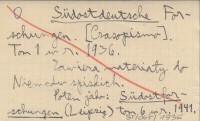 O Südostdeutsche For-
schungen. [Czasopismo].
Tom 1 w r. 1936.
Zawiera materiały do
Niemców spiskich.
Potem jako: Südostfor-
schungen (Leipzig) tom 6 w r. 1941.